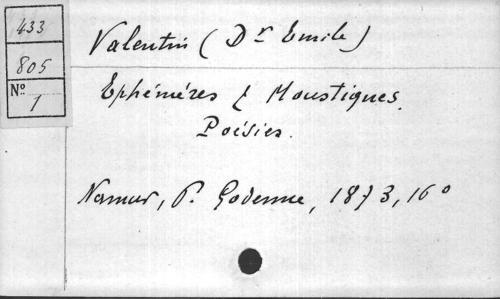 433
805
Nº
1
Valentin (Dr Emile)
Ephémères & Moustiques.
Poésies.
Namur, P. Godenne, 1873, 16º